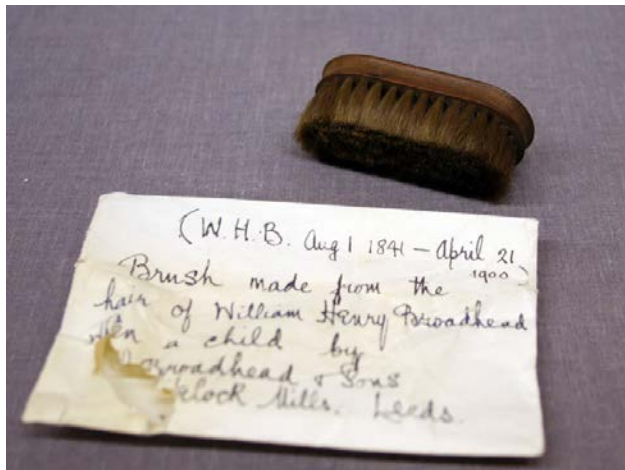 (W.H.B. Aug 1 1841 – April 21 1900)
Brush made from the
hair of William Henry Broadhead
when a child by
Broadhead & Sons
Mills. Leeds.